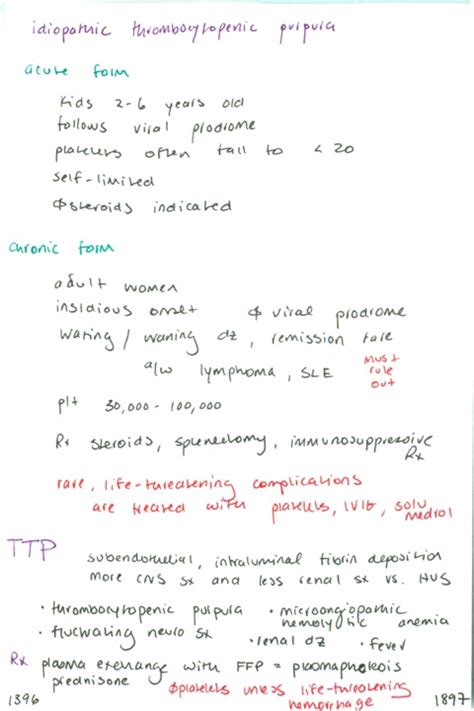 idiopathic thrombocytopenic purpura
acute form
Kids 2-6 years old
follows viral prodrome
platelets often fall to < 20
self-limited
∅ steroids indicated
chronic form
adult women
insidious onset ∅ viral prodrome
waxing / waning dz, remission rare
a/w lymphoma, SLE must rule out
plt 30,000 - 100,000
Rx steroids, splenectomy, immunosuppressive Rx
rare, life-threatening complications
are treated with platelets, IVIG, solu medrol
TTP subendothelial, intraluminal fibrin deposition
more CNS sx and less renal sx vs. HUS
• thrombocytopenic purpura • microangiopathic hemolytic anemia
• fluctuating neuro sx • renal dz • fever
Rx plasma exchange with FFP = plasmapheresis
prednisone ∅ platelets unless life-threatening hemorrhage
1396 1897